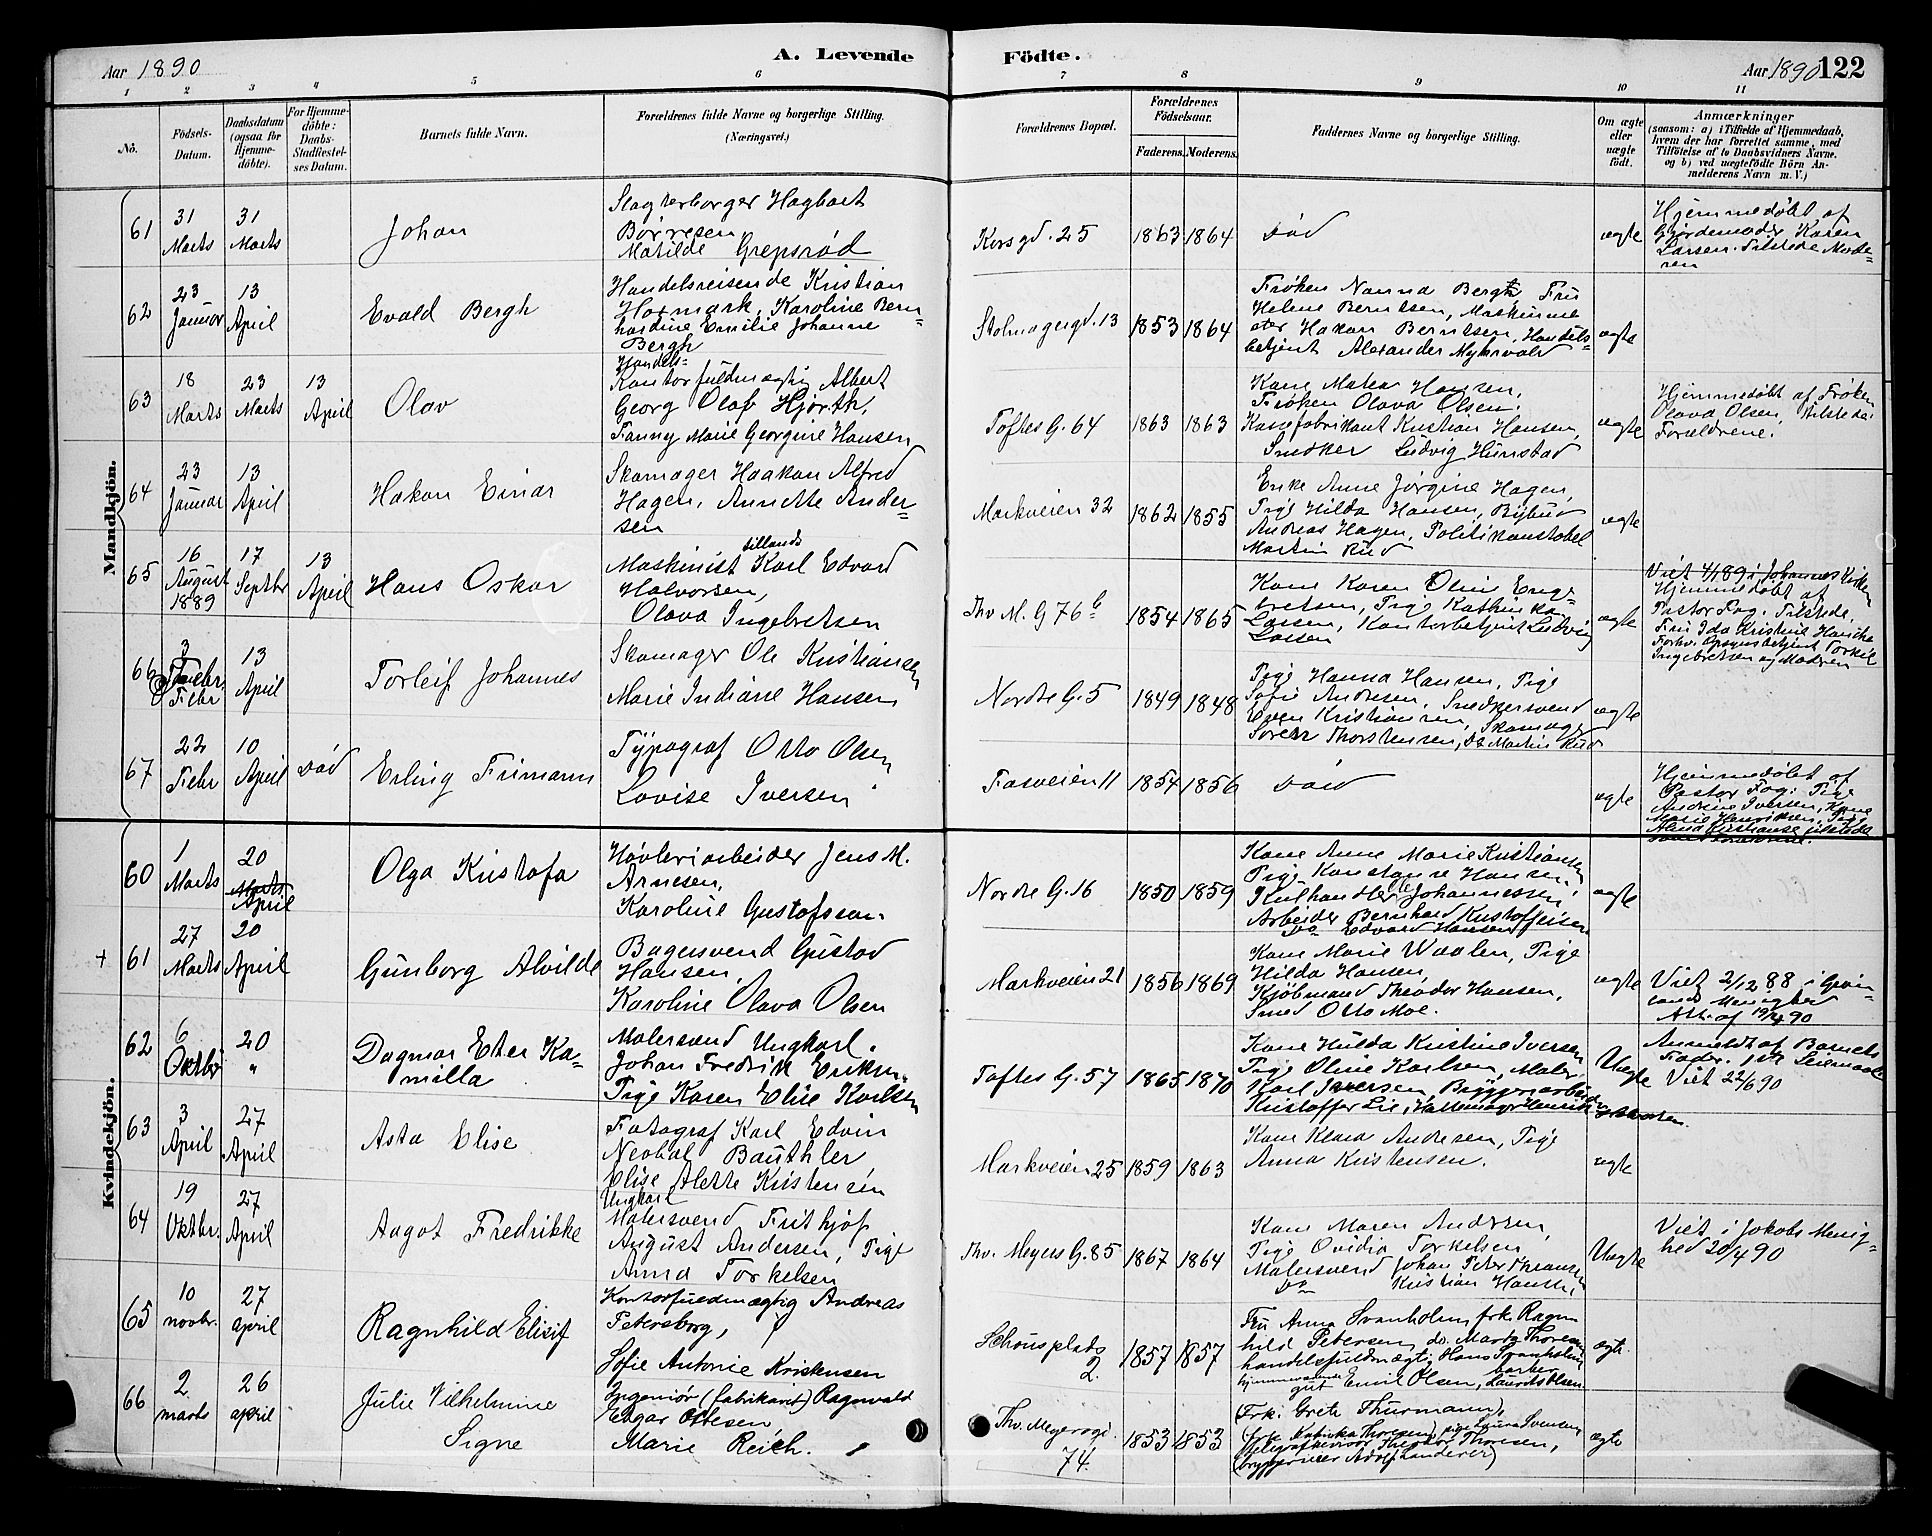 Aar 1890
A. Levende
Födte.
Aar 1890 122
1 2 3 4 5 6 7 8 9 10 11
No.
Födsels-
Datum.
Daabsdatum
(ogsaa for
Hjemme-
döbte).
For Hjemme-
döbte:
Daabs-
Stadfestel-
ses Datum.
Barnets fulde Navn.
Forældrenes fulde Navne og borgerlige Stilling.
(Næringsvei.)
Forældrenes Bopæl.
Forældrenes
Födselsaar.
Faderens. Moderens.
Faddernes Navne og borgerlige Stilling.
Om ægte
eller
uægte
födt.
Anmærkninger
(saasom: a) i Tilfælde af Hjemmedaab,
hvem der har forrettet samme, med
Tilföielse af to Daabsvidners Navne.
og b) ved uægtefödte Börn An-
melderens Navn m. V.)
Mandkjön.
61
31
Marts
31
Marts
Johan
Slagterborger Hagbart
Börresen
Matilde Grepsrød
Korsgd. 25
1863 1864
Död
ægte
Hjemmedøbt af
Gjordemoder Karen
Larsen. Tilstede Mode-
ren
62
23
Januar
13
April
Evald Bergh
Handelsreisende Kristian
Hormark, Karoline Bern-
hardine Emilie Johanne
Bergh
Stolmagergd. 13
1853 1864
Frøken Nanna Bergh, Fru
Helene Berntsen, Maskinme
ster Hakon Berntsen, Handels-
betjent Alexander Myhrvold
ægte
63
18
Marts
23
Marts
13
April
Olav
Handels-
Kontorfuldmægtig Albert
Georg Olaf Hjorth,
Fanny Marie Georgine Hansen
Toftes G. 64
1863 1863
Kone Matea Hansen,
Frøken Olava Olsen,
Kassefabrikant Kristian Hansen,
Snedker Ludvig Hunstad
ægte
Hjemmedøbt af Frøken
Olava Olsen, tilstede:
Forældrene.
64
23
Januar
13
April
Hakon Einar
Skomager Haakon Alfred
Hagen, Annette Ander-
sen
Markveien 32
1862 1855
Enke Anne Jørgine Hagen,
Pige Hilda Hansen, Bybud
Andreas Hagen, Politikonstabel
Martin Rud
ægte
65
16
August
1889
17
Septbr
13
April
Hans Oskar
tillands
Maskinist Karl Edvard
Halvorsen,
Olava Ingebretsen
Thv. M. G 76 b
1854 1865
Kone Karen Oline Enge-
bretsen, Pige Kathinka
Larsen, Kontorbetjent Ludvig
Larsen
ægte
Viet 4/1 89 i Johannes Kirken
Hjemmedøbt af
Pastor Fog. Tilstede,
Fru Ida Kristine Hansche
Forhv. Opsynsbetjent Torkil
Ingebretsen og Moderen
66
3
Febr
13
April
Torleif Johannes
Skomager Ole Kristiansen
Marie Indiane Hansen
Nordre G. 5
1849 1848
Pige Hanna Hansen, Pige
Sofie Andresen, Snedkersvend
Even Kristiansen, Skomager
Søren Thorstensen, Do Martin Rud
ægte
67
22
Febr
10
April
Död
Erling Frimann
Typograf Otto Olsen
Lovise Iversen
Fosveien 11
1854 1856
Død
ægte
Hjemmedøbt af
Pastor Fog: Pige
Andrine Iversen, Kone
Marie Henriksen, Pige
Kvindekjön.
60
1
Marts
20
Marts
April
Olga Kristofa
Høvleriarbeider Jens M.
Arnesen,
Karoline Gustafsson.
Nordre G. 16
1850 1859
Kone Anne Marie Kristiansen
Pige Konstanse Hansen,
Kulhandler Johannessen
Arbeider Bernhard Kristoffersen
Do Edvard Hansen
ægte
+ 61
27
Marts
20
April
Gunborg Alvilde
Bagersvend Gustav
Hansen,
Karoline Olava Olsen
Markveien 21
1856 1869
Kone Marie Waalen, Pige
Hilda Hansen,
Kjøbmand Theodor Hansen,
Smed Otto Moe.
ægte
Viet 2/12 88 i Grøn-
lands Menighed
Att. af 19/4 90
62
6
Oktbr
20
"
Dagmar Ester Ka-
milla
Malersvend Ungkarl.
Johan Fredrik Eriksen
Pige Karen Elise Karlsen
Toftes G. 57
1865 1870
Kone Hulda Kristine Iversen
Pige Oline Karlsen, Maler
Karl Iversen, Bryggeriarbeider
Kristoffer Lie, Hattemager Henrik
Uægte
Anmeldt af Barnets
Fader. 1ste Leiermaal
Viet 22/6 90
63
3
April
27
April
Asta Elise
Fotograf Karl Edvin
Neobal Bauthler
Elise Alette Kristensen
Markveien 25
1859 1863
Kone Klara Andersen, Pige
Anna Kristensen.
ægte
64
19
Oktbr.
27
April
Aagot Fredrikke
Ungkarl
Malersvend Frithjof
August Andersen, Pige
Anna Torkelsen
Thv. Meyers G. 85
1867 1864
Kone Maren Andersen,
Pige Ovidia Torkelsen
Malersvend Johan Peter Thransen
Do Kristian Hansen,
Uægte
Viet i Jakobs Menig-
hed 20/4 90
65
10
novbr.
27
april
Ragnhild Elisif
Kontorfuldmægtig Andreas
Petersborg,
Sofie Antonie Kristensen
Schousplads
2.
1857 1857
Fru Anna Svanholm, frk. Ragn
hild Petersen, do. Marta Thoresen
handelsfuldmægtig Hans Svanholm
hjemmeværende barber
gut Emil Olsen, Laurits Olsen
ægte.
66
2
marts
26
april
Julie Vilhelmine
Signe
Ingeniør (fabrikant) Ragnvald
Edgar Ottesen
Marie Reich.
Thv. Meyersgd.
74.
1853 1853
(Frk. Grete Thurmann,
(frk. Kathinka Thoresen) pige Laura Svensen
Telegrafrevisor Theodor Thoresen,
(bryggerieier Adolf Landerer)
ægte